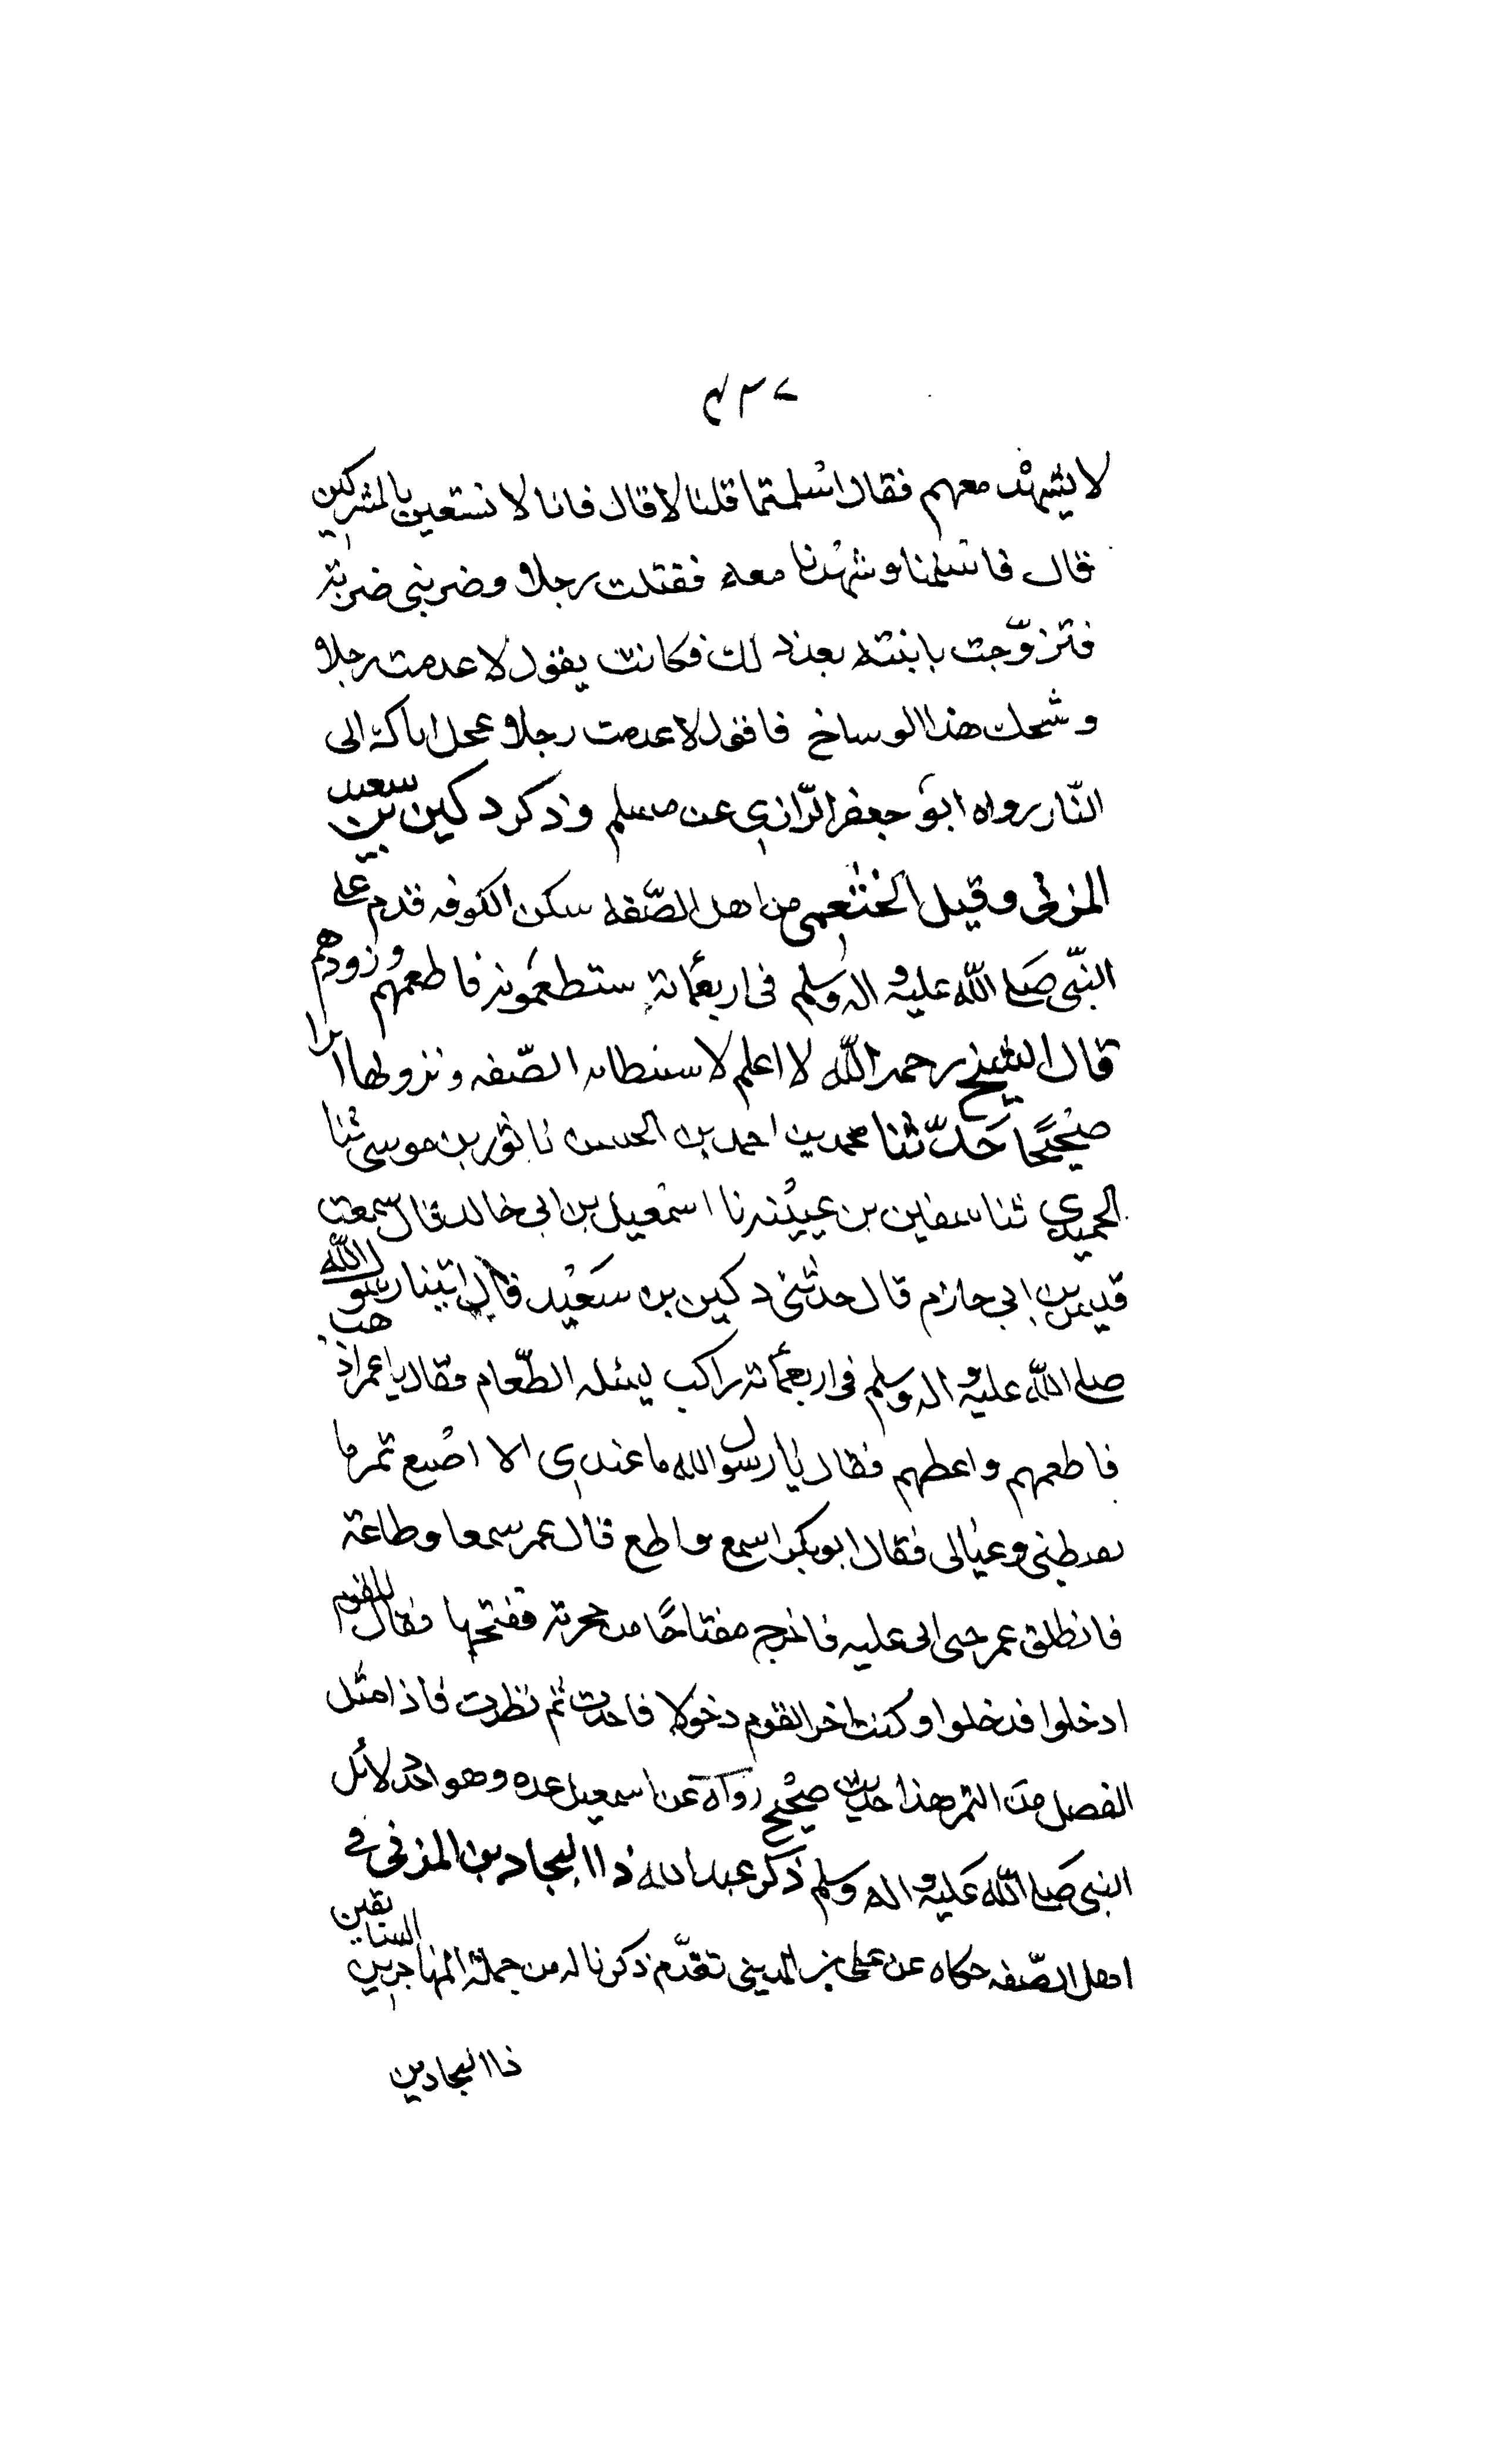 ٤٣٧
لا يشهد معهم فقال اسلمتما قلنا لا قال فانا لا نستعين بالمشركين
قال فاسلمنا وشهدنا معه فقتلت رجلا وضربني ضربة
فتزوّجت بابنته بعد ذلك فكانت يقول لا عدمت رجلا
وشحك هذا الوساخ فاقول لا عدمت رجلا عجل اباك الى
النّار رواه ابو جعفر الرّازي عن مسلم وذكر دكين بن سعيد
المزني وقيل الخثعمي من اهل الصّفه سكن الكوفه قدم على
النّبي صلى اللّه عليه واله وسلم في اربعمائة ستطعمونه فاطعمهم وزودهم
قال الشيخ رحمه اللّه لا اعلم لاسنطانه الصّفه ونزولها اثرا
صحيحًا حدّثنا محمد بن احمد بن الحسن نا ثور بن موسى ثنا
الحميدي ثنا سفين بن عيينه نا اسمعيل بن ابي خالد قال سمعت
قيس بن ابي حازم قال حدثني دكين بن سعيد قال اتينا رسول اللّه
صلى اللّه عليه واله وسلم في اربعمائة راكب يسئله الطّعام فقال يا عمر اذهب
فاطعمهم واعطهم فقال يا رسول الله ما عندي الا اصع تمر ما
يقيظني وعيالى فقال ابوبكر اسمع واطع قال عمر سمعا وطاعة
فانطلق عمر حتى اتى عليه فاخرج مفتاحًا من حجزته ففتحها فقال للقوم
ادخلوا فدخلوا وكنت اخر القوم دخولا فاخذت ثم نظرت فاذا مثل
الفصل من التمر هذا حديث صحيح رواه عن اسمعيل عده وهو احد دلائل
النبي صلى اللّه عليه واله وسلم ذكر عبد الله ذا البجادين المزني في
اهل الصّفه حكاه عن على بن المديني تقدّم ذكرنا له من جملة المهاجرين السابقين
ذا البجادين